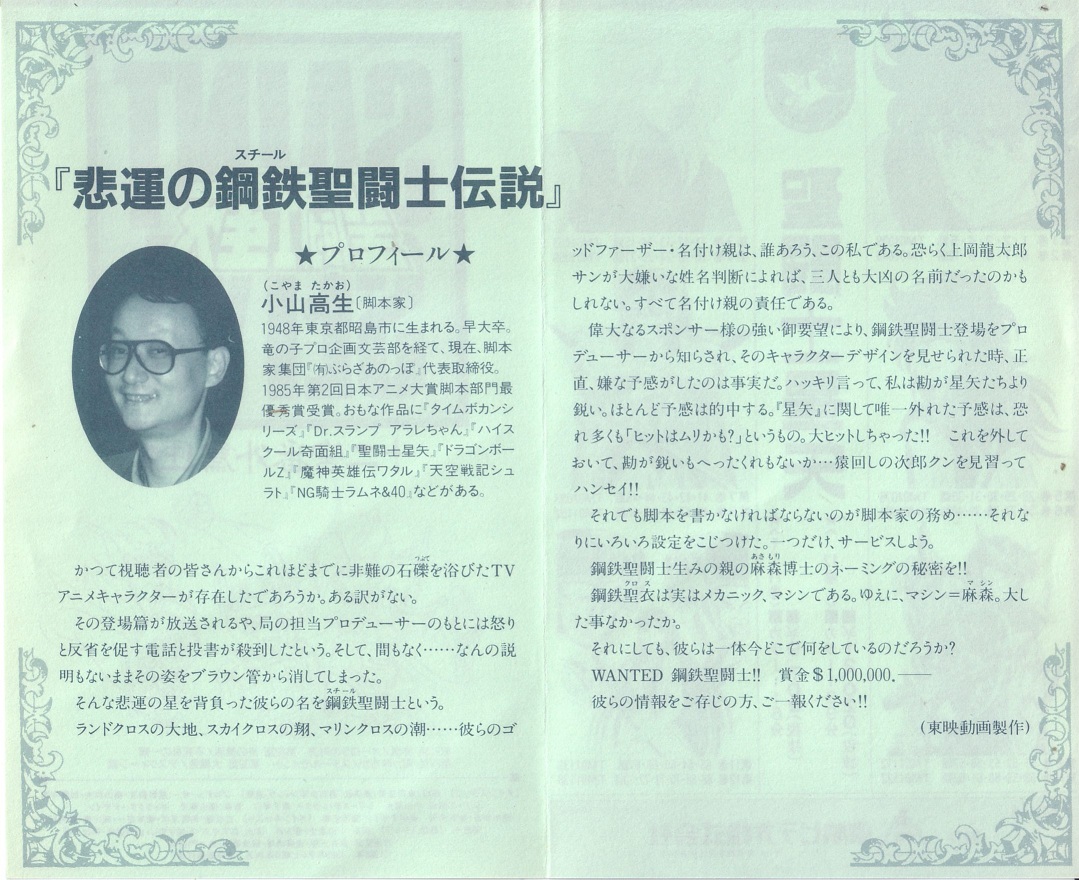 スチール
『悲運の鋼鉄聖闘士伝説』
★プロフィール★
(こやま たかお)
小山高生〔脚本家〕
1948年東京都昭島市に生まれる。早大卒。
竜の子プロ企画文芸部を経て、現在、脚本
家集団『㈲ぶらざあのっぽ』代表取締役。
1985年第2回日本アニメ大賞脚本部門最
優秀賞受賞。おもな作品に『タイムボカンシ
リーズ』『Dr.スランプ アラレちゃん』『ハイス
クール奇面組』『聖闘士星矢』『ドラゴンボー
ルZ』『魔神英雄伝ワタル』『天空戦記シュ
ラト』『NG騎士ラムネ&40』などがある。
つぶて
かつて視聴者の皆さんからこれほどまでに非難の石礫を浴びたTV
アニメキャラクターが存在したであろうか。ある訳がない。
その登場篇が放送されるや、局の担当プロデューサーのもとには怒り
と反省を促す電話と投書が殺到したという。そして、間もなく……なんの説
明もないままその姿をブラウン管から消してしまった。
スチール
そんな悲運の星を背負った彼らの名を鋼鉄聖闘士という。
ランドクロスの大地、スカイクロスの翔、マリンクロスの潮……彼らのゴ
ッドファーザー・名付け親は、誰あろう、この私である。恐らく上岡龍太郎
サンが大嫌いな姓名判断によれば、三人とも大凶の名前だったのかも
しれない。すべて名付け親の責任である。
偉大なるスポンサー様の強い御要望により、鋼鉄聖闘士登場をプロ
デューサーから知らされ、そのキャラクターデザインを見せられた時、正
直、嫌な予感がしたのは事実だ。ハッキリ言って、私は勘が星矢たちより
鋭い。ほとんど予感は的中する。『星矢』に関して唯一外れた予感は、恐
れ多くも「ヒットはムリかも?」というもの。大ヒットしちゃった!! これを外して
おいて、勘が鋭いもへったくれもないか…猿回しの次郎クンを見習って
ハンセイ!!
それでも脚本を書かなければならないのが脚本家の務め……それな
りにいろいろ設定をこじつけた。一つだけ、サービスしよう。
あさもり
鋼鉄聖闘士生みの親の麻森博士のネーミングの秘密を!!
クロス マシン
鋼鉄聖衣は実はメカニック、マシンである。ゆえに、マシン=麻森。大し
た事なかったか。
それにしても、彼らは一体今どこで何をしているのだろうか?
WANTED 鋼鉄聖闘士!! 賞金$1,000,000.——
彼らの情報をご存じの方、ご一報ください!!
(東映動画製作)